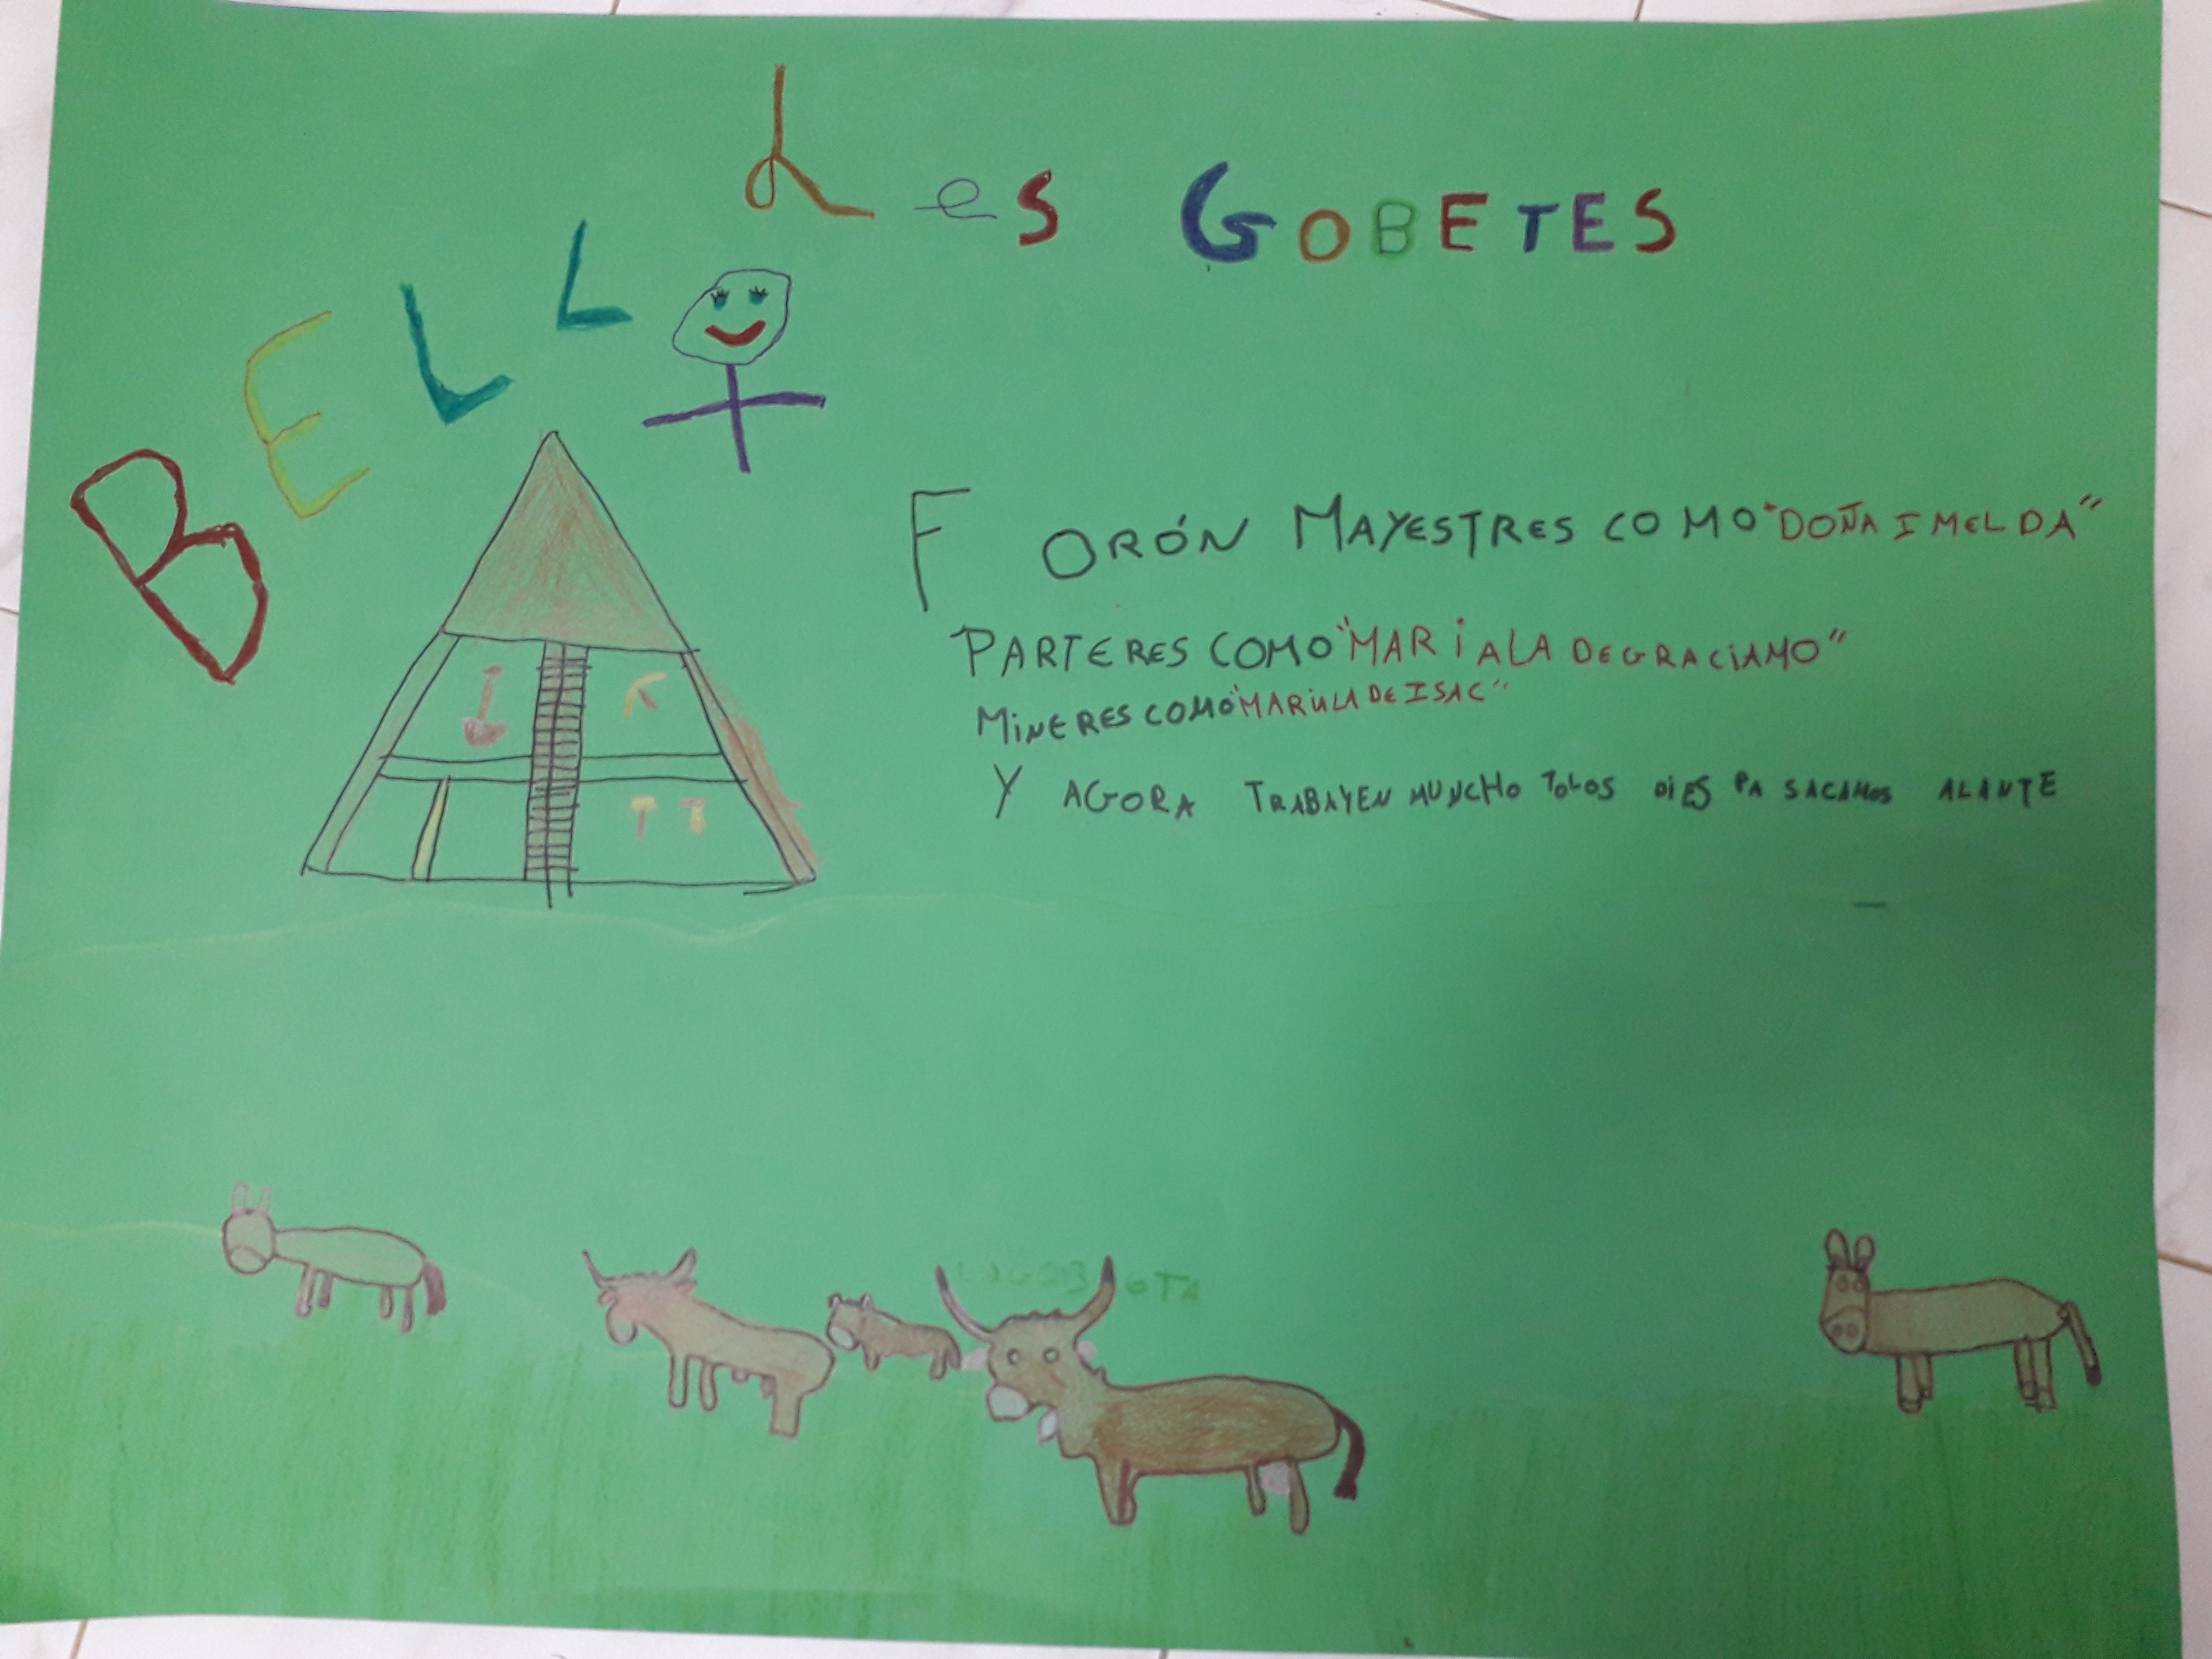 BELLO
Les GOBETES
FORÓN MAYESTRES COMO "DOÑA IMELDA"
PARTERES COMO "MARIA LA DE GRACIANO"
MINERES COMO "MARI LA DE ISAC"
Y AGORA TRABAYEN MUNCHO TOLOS DIES PA SACAMOS ALANTE